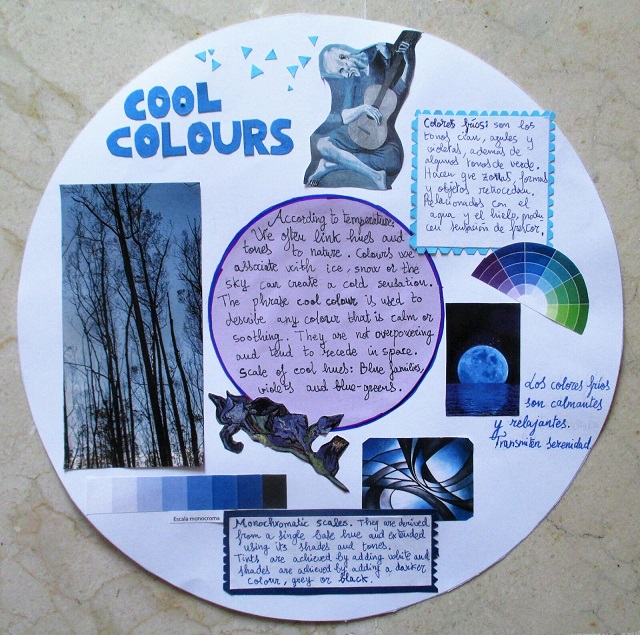 COOL
COLOURS
Colores fríos: son los
tonos cian, azules y
violetas, además de
algunos tonos de verde.
Hacen que zonas, formas
y objetos retrocedan.
Relacionados con el
agua y el hielo, produ
cen sensación de frescor.
According to temperature:
We often link hues and
tones to nature. Colours we
associate with ice, snow or the
sky can create a cold sensation.
The phrase cool colour is used to
describe any colour that is calm or
soothing. They are not overpowering
and tend to recede in space.
Scale of cool hues: Blue families,
violets and blue-greens.
Los colores fríos
son calmantes
y relajantes.
Transmiten serenidad
Escala monocroma
Monochromatic scales. They are derived
from a single base hue and extended
using its shades and tones.
Tints are achieved by adding white and
shades are achieved by adding a darker
colour, grey or black.